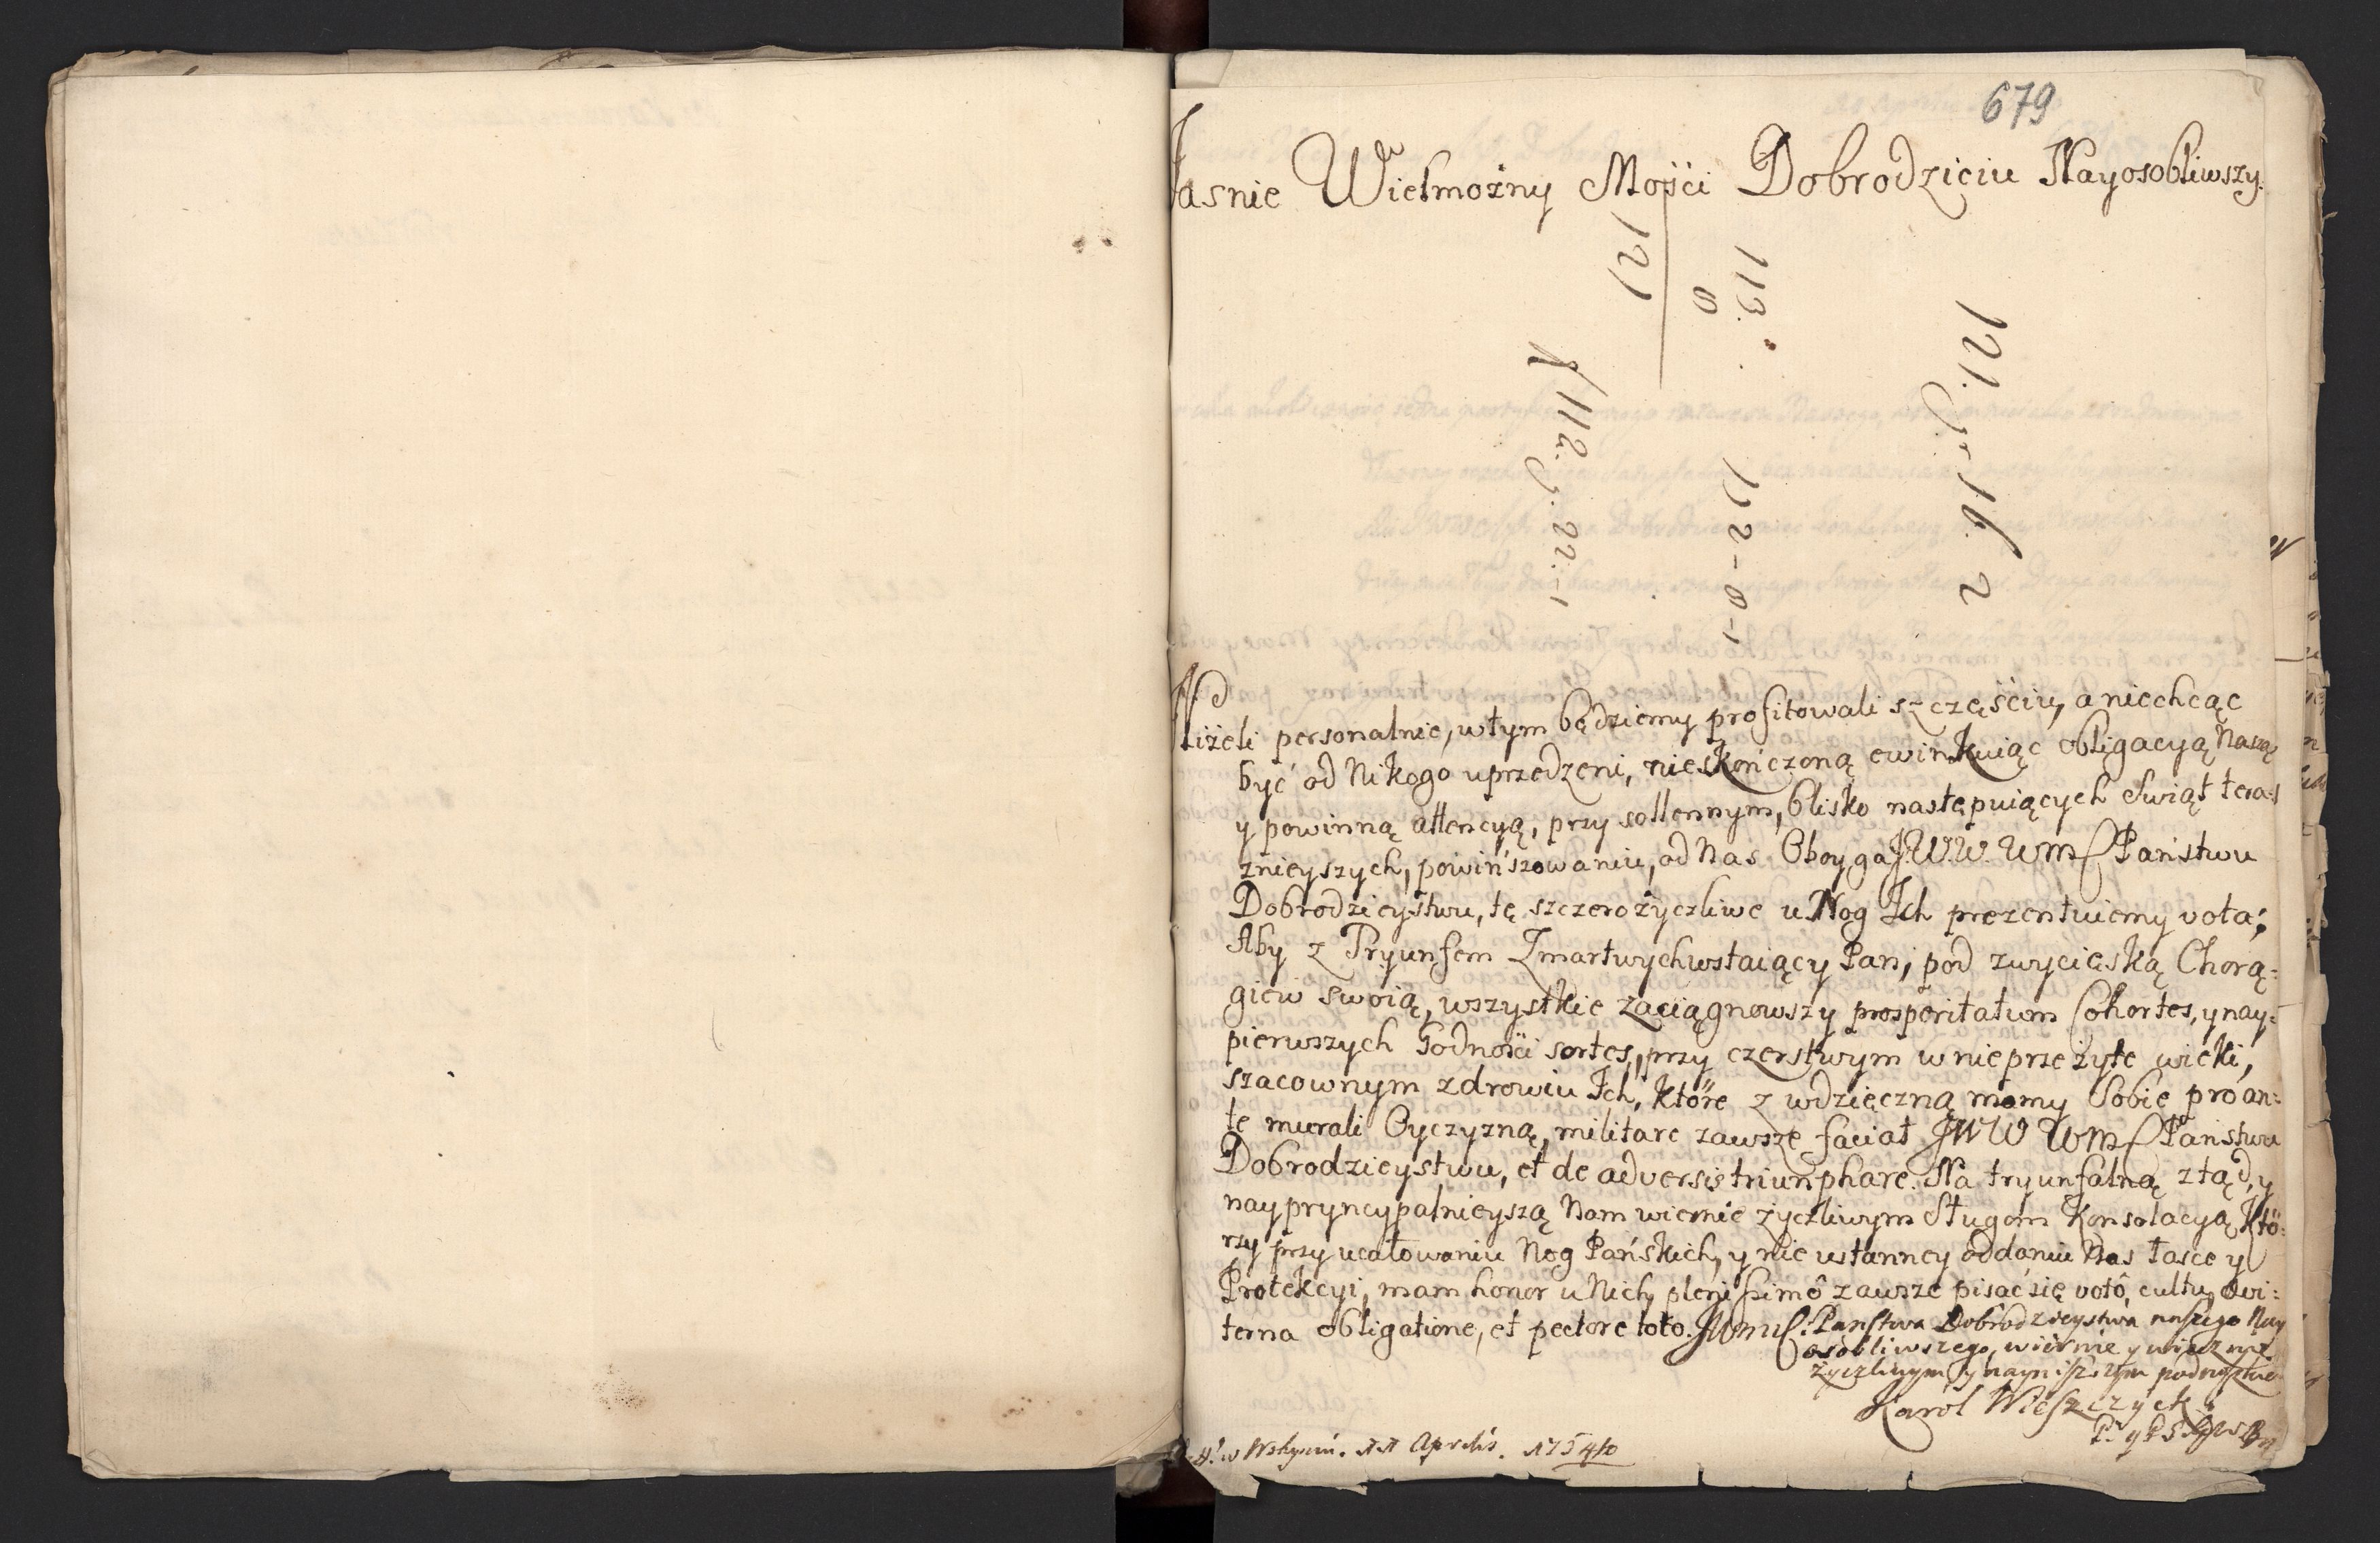 679
Jasnie Wielmożny Mosci Dobrodzieiu Nayosobliwszy.
121
113.
0
112. g. 22.-1
112-0-1
121. gr. 16. 2
Niżeli personalnie, w tym będziemy profitowali szczęściu, a niechcąc
być od Nikogo uprzedzeni, nieskończoną ewinkuiąc obligacyą Naszą
y powinną attencyą, przy sollennym, blisko następuiących Swiąt tera:
znieyszych, powinszowaniu, od Nas Oboyga J.W.W. WM Państwu
Dobrodzieystwu, tę szczerożyczliwe u Nog Ich prezentuiemy vota;
Aby z Tryunfem Zmartwychwstaiący Pan, pod zwycięską Chorą:
giew swoią, wszystkie zaciągnowszy prosperitatum Cohortes, y nay:
pierwszych Godności sortes, przy czerstwym w nieprzeżyte wieki,
szacownym zdrowiu Ich, które z wdzięczną mamy Sobie pro an:
te murali Oyczyzną, militare zawsze faciat JWW WM Państwu
Dobrodzieystwu, et de adversis triumphare. Na tryunfalną ztąd, y
naypryncypalnieyszą Nam wiernie życzliwym Sługom Konsolacyą, któ:
rzy przy ucałowaniu Nog Pańskich, y nie ustanney oddaniu Nas łasce y
Protekcyi, mam honor u Nich, plenissimô zawsze pisać się votô, cultu, ævi:
terna obligatione, et pectore toto. Państwa Dobrodzieystwa naszego Nay
osobliwszego, wiernie y wiecznie
życzliwym y nayniższym podnóżkiem
Karol Wieszczycki
w Wohyniu. 11 Aprilis. 1740